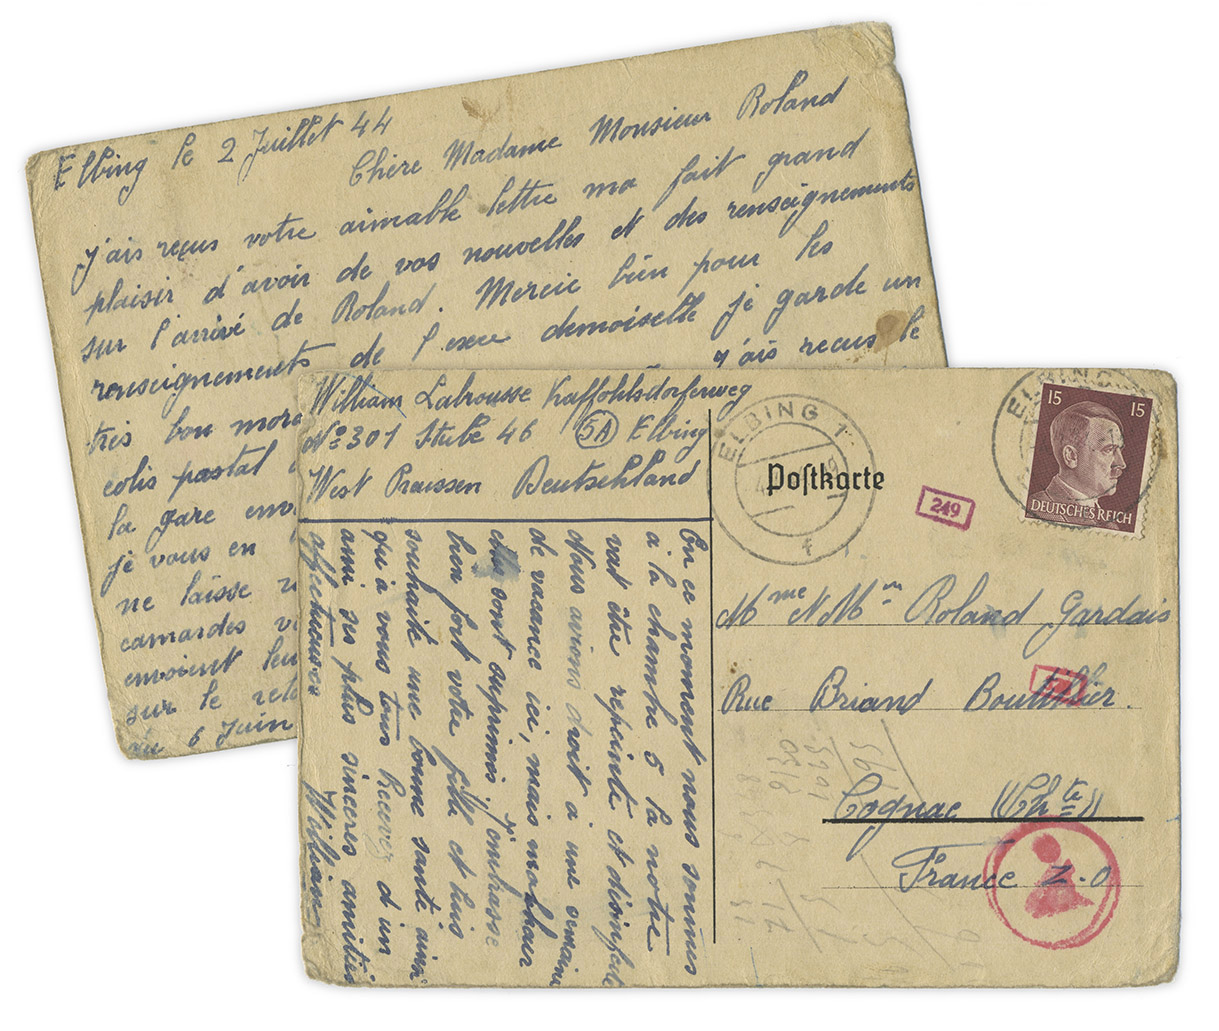 Elbing le 2 Juillet 44
Chère Madame Monsieur Roland
j'ais reçus votre aimable lettre ma fait grand
plaisir d'avoir de vos nouvelles et des renseignements
sur l'arrivé de Roland. Mercie bien pour les
renseignements de l'exeu demoiselle je garde un
très bon mora j'ais recus le
colis pastal
la gare env
je vous en
ne laisse
camardes v
envoient leu
sur le reto
du 6 Juin
William Labrousse Kaffohlsdorferweg
No 301 Stube 46 5A Elbing
West Praissen Deutschland
En ce moment nous sommes
a la chambre 5 la notre
vat être repeinte et disinfecte
Nous avions droit a une semaine
de vasance ici, mais malheur
elles sont suprimis j'embrasse
bien fort votre fille et luis
souhaite une bonne santé ainsi
qu'a vous tous Recevez d'un
ami ses plus sinceres amitiés
affectueuses William
ELBING 1
f
Postkarte
249
ELBING
15 15
DEUTSCHES REICH
Mme N Mr Roland Gardais
Rue Briand Bouthillier.
Cognac (Chte)
France Z-O